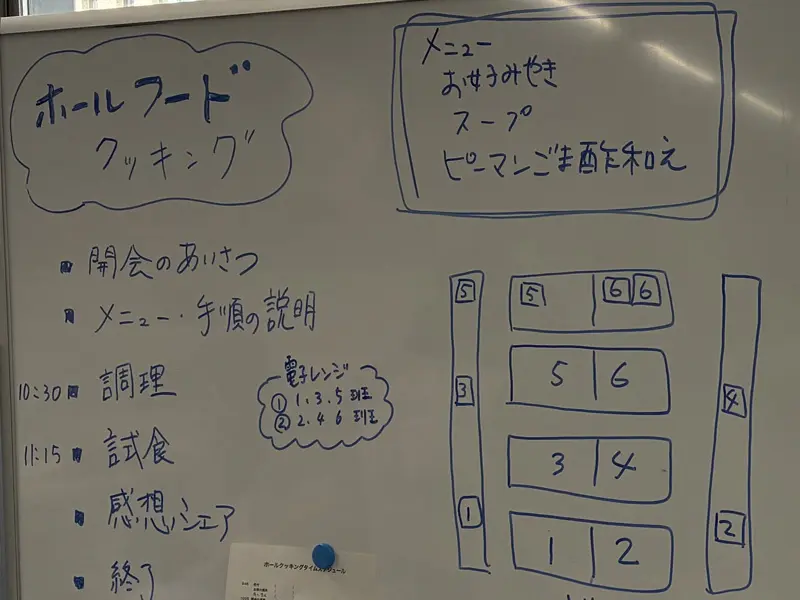 ホールフード
クッキング
メニュー
お好みやき
スープ
ピーマンごま酢和え
開会のあいさつ
メニュー・手順の説明
10:30 調理
11:15 試食
感想シェア
終了
電子レンジ
① 1.3.5 班
② 2.4 6 班
5 5 6 6
5 6
3 4
3 4
1 2
1 2
ホールクッキングタイムスケジュール